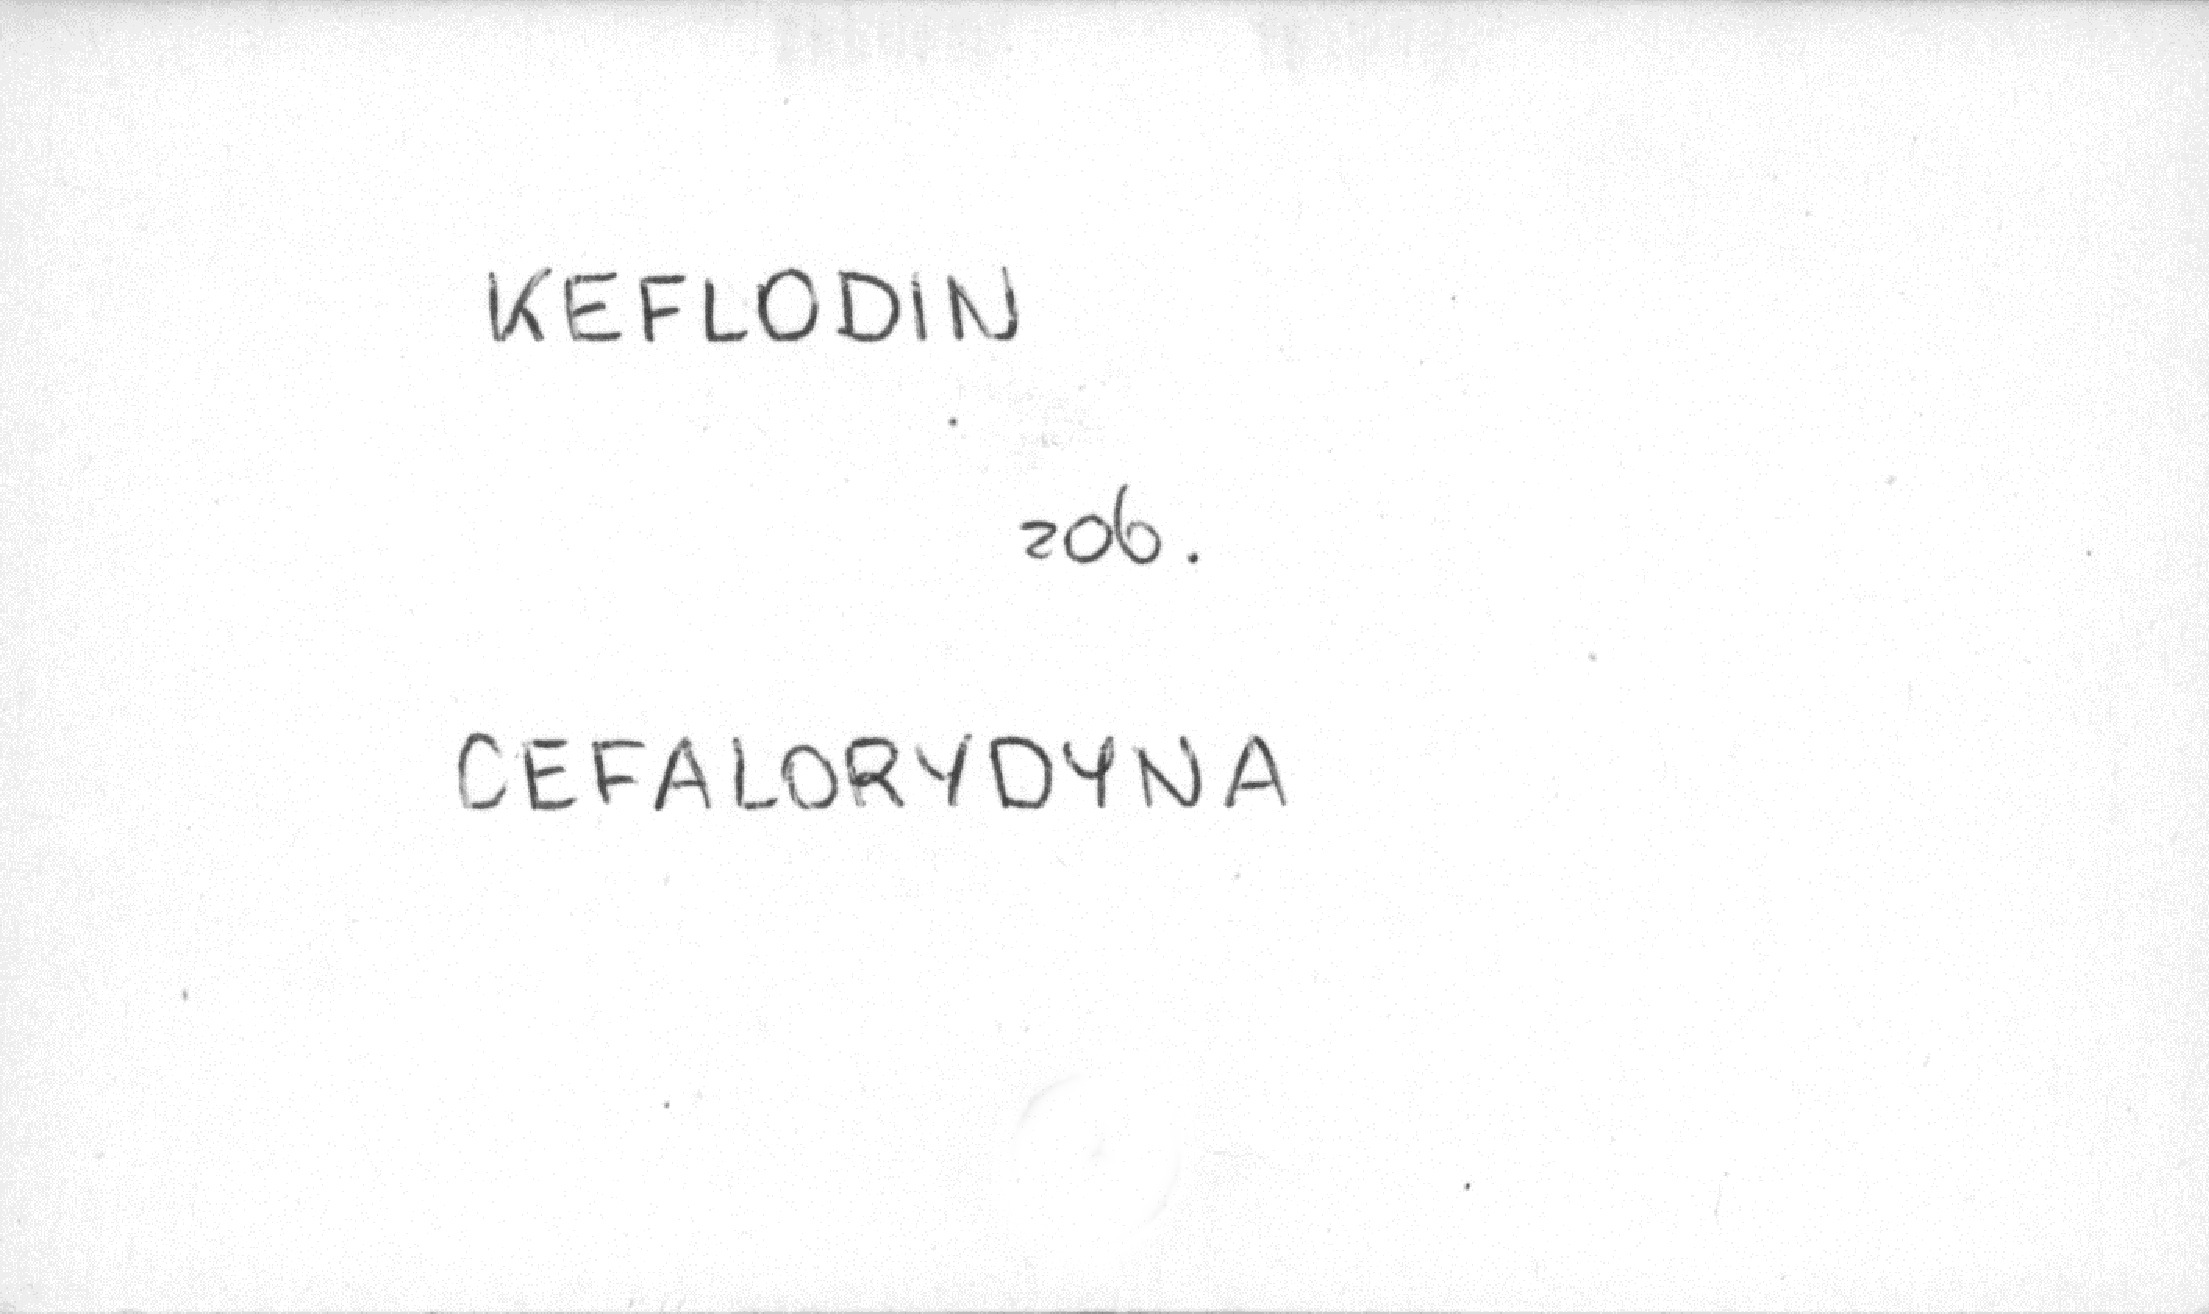 KEFLODIN
zob.
CEFALORYDYNA